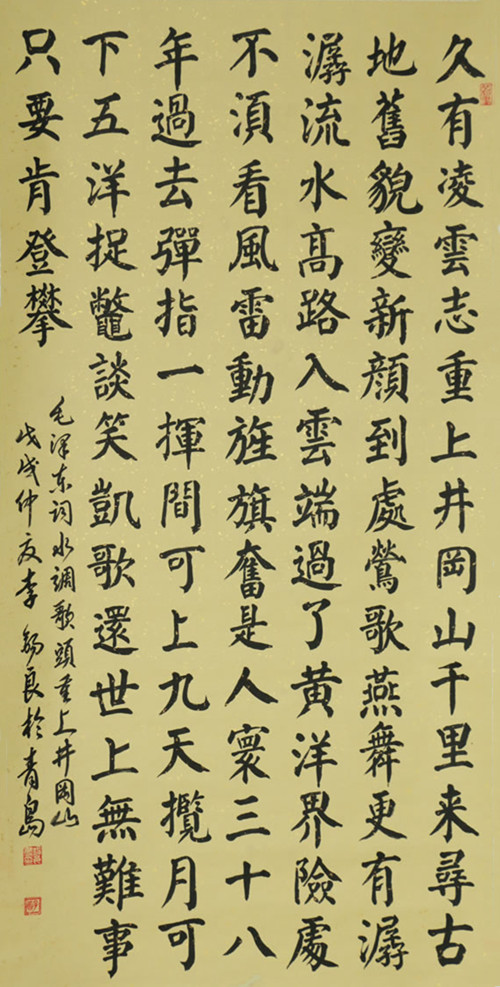 久有凌雲志重上井岡山千里来尋古
地舊貌變新顔到處鶯歌燕舞更有潺
潺流水髙路入雲端過了黄洋界險處
不湏看風雷動旌旗奮是人寰三十八
年過去彈指一揮間可上九天攬月可
下五洋捉鼈談笑凱歌還世上無難事
只要肯登攀
毛泽东词水調歌頭重上井岡山
戊戌仲夏李良於青島